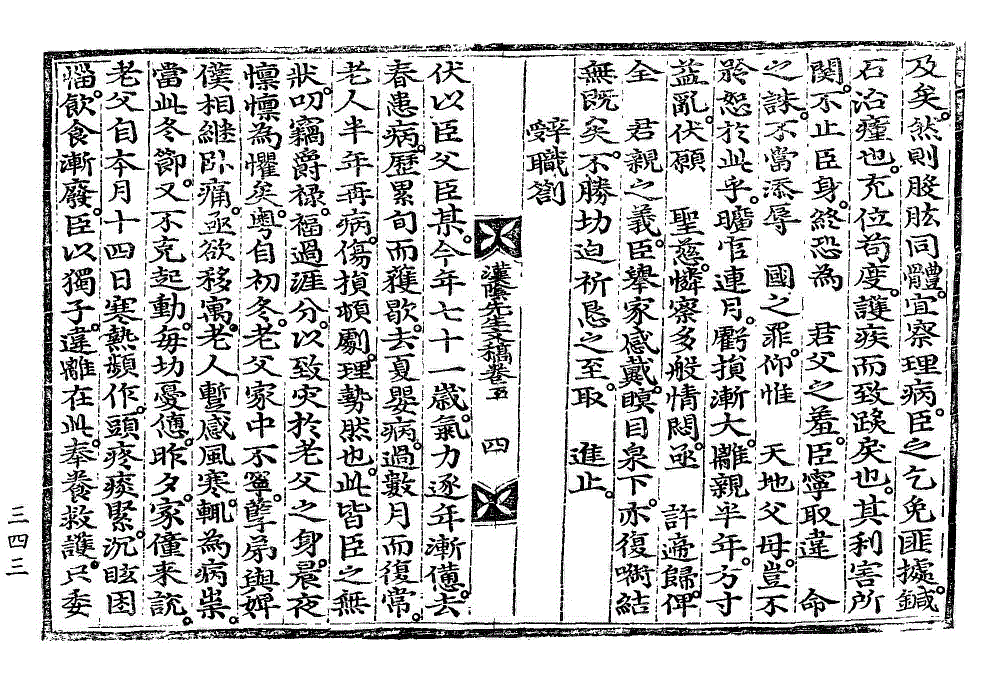 及矣。然則股肱同體。宜察理病。臣之乞免匪據。鍼
石治癉也。充位苟度。護疾而致踣戾也。其利害所
關。不止臣身。終恐為 君父之羞。臣寧取違 命
之誅。不當添辱 國之罪。仰惟 天地父母。豈不
矜恕於此乎。曠官連月。虧損漸大。離親半年。方寸
益亂。伏願 聖慈。憐察多般情悶。亟 許遞歸。俾
全 君親之義。臣擧家感戴。瞑目泉下。亦復啣結
無既矣。不勝切迫祈恳之至。取 進止。
辭職劄
漢陰先生文稿卷五 四
伏以臣父臣某。今年七十一歲。氣力逐年漸憊。去
春患病。歷累旬而難歇。去夏嬰病。過數月而復常。
老人半年再病。傷損頓劇。理勢然也。此皆臣之無
狀。叨竊爵祿。福過涯分。以致灾於老父之身。晨夜
懍懍為懼矣。粤自初冬。老父家中不寧。孽弟與婢
僕相繼卧痛。亟欲移寓。老人暫感風寒。輒為病祟。
當此冬節。又不克起動。每切憂憊。昨夕。家僮來說。
老父自本月十四日寒熱頻作。頭疼痰緊。沉眩困
惱。飲食漸廢。臣以獨子。違離在此。奉養救護。只委
三四三